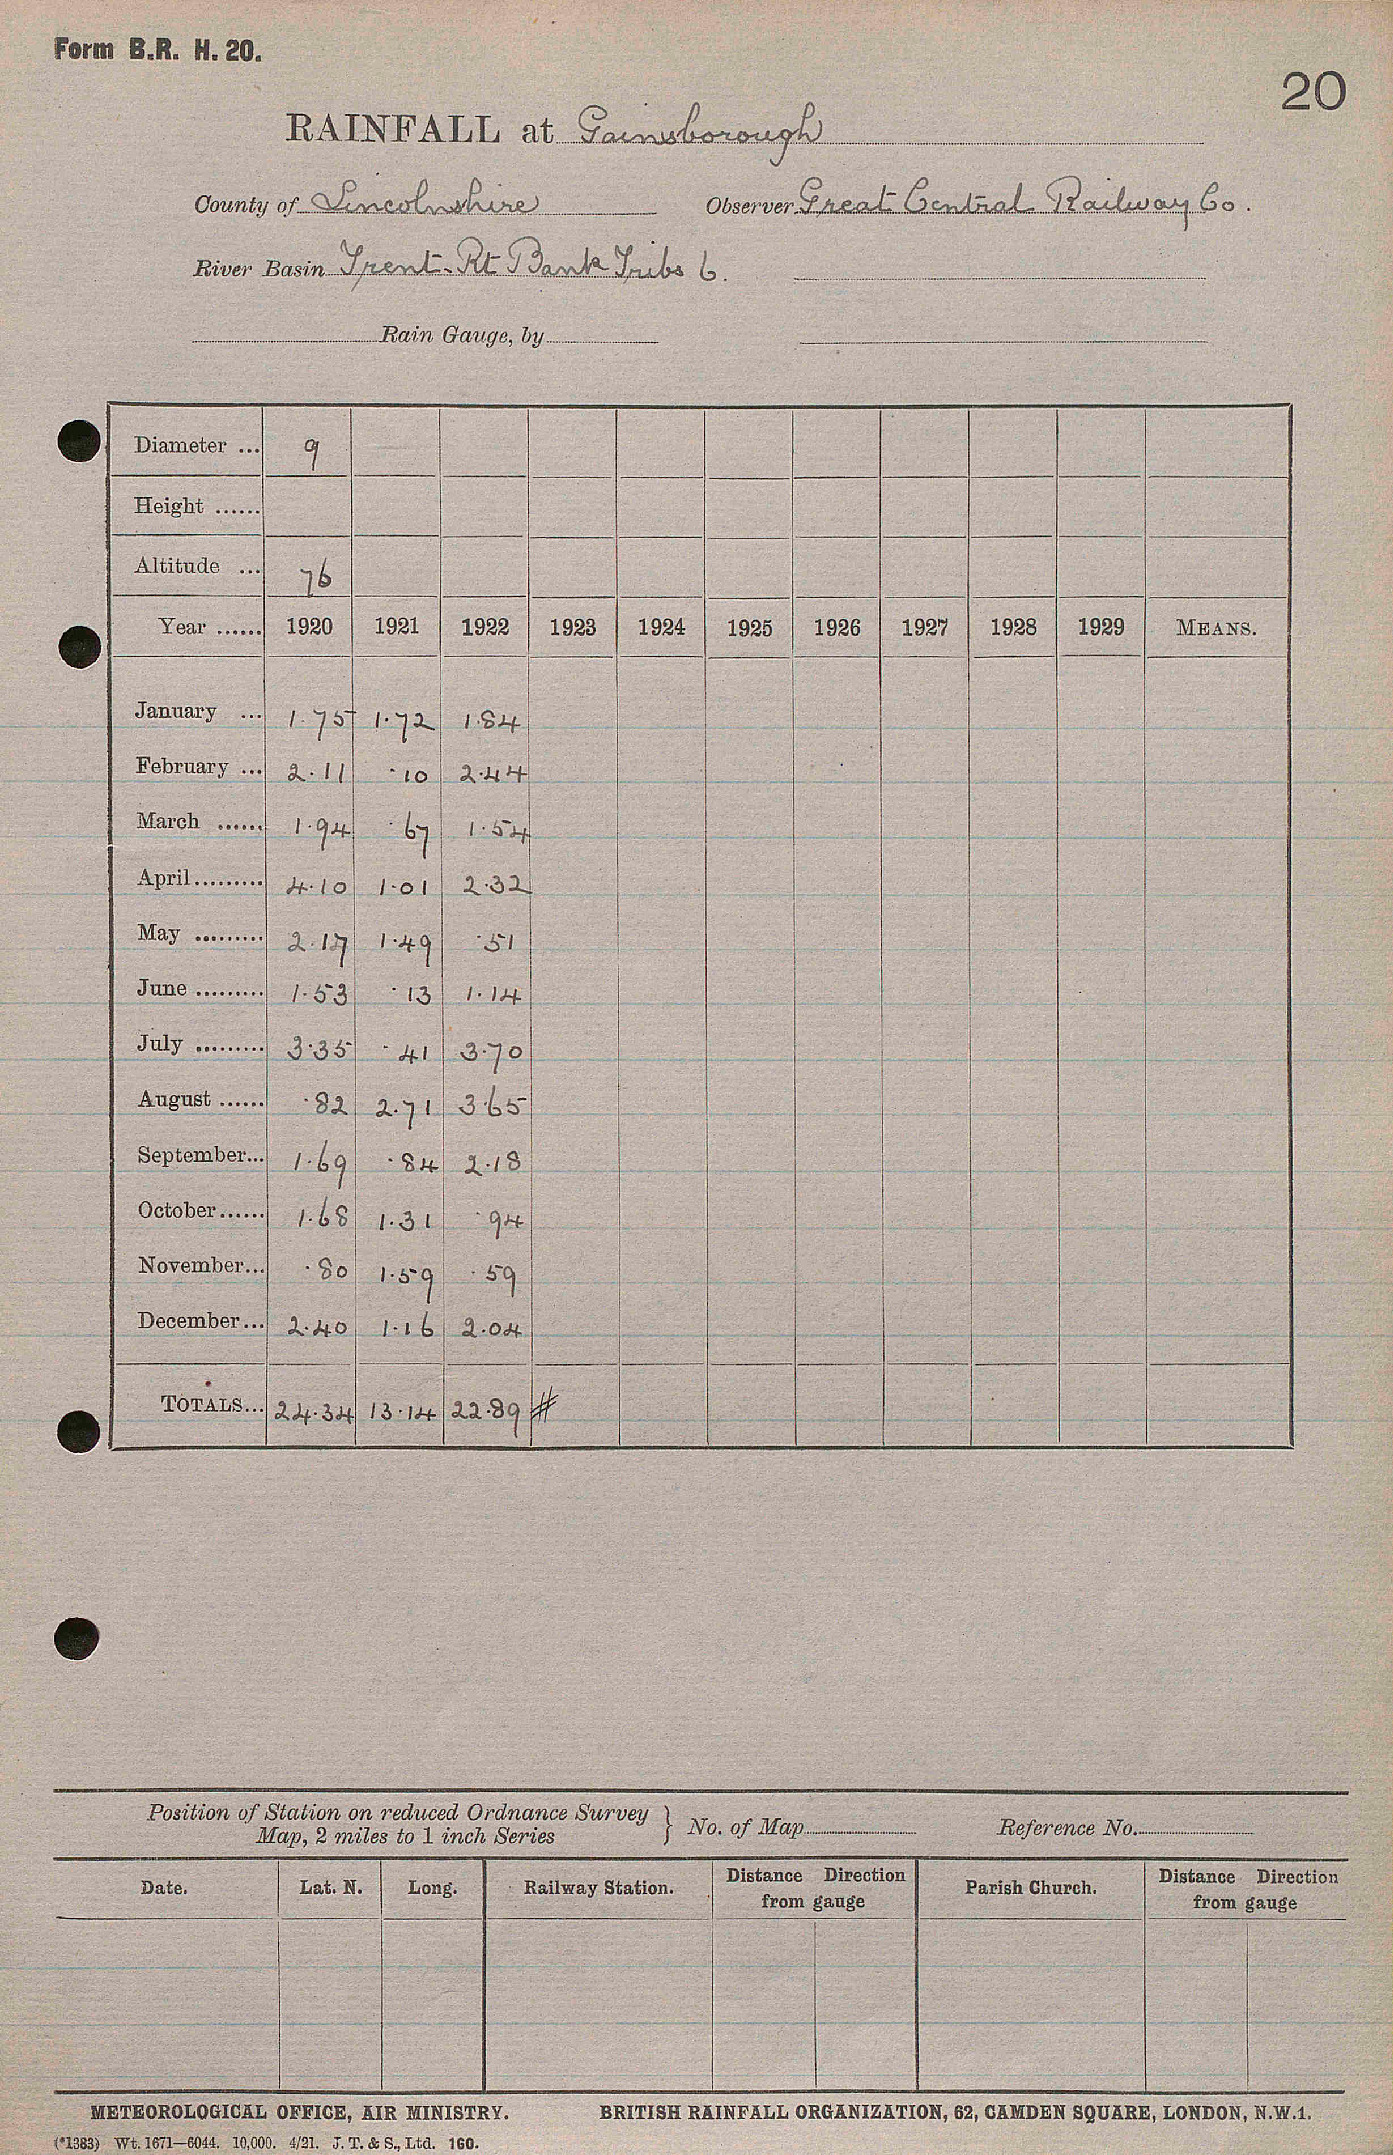 Form B.R. H. 20.
20
RAINFALL at Gainsborough
County of Lincolnshire Observer Great Central Railway Co.
River Basin Trent-Rt Bank Tribs 6.
Rain Gauge, by
Diameter ... 9
Height ......
Altitude ... 76
Year ...... 1920 1921 1922 1923 1924 1925 1926 1927 1928 1929 MEANS.
January ... 1.75 1.72 1.84
February ... 2.11 .10 2.44
March ...... 1.94 .67 1.54
April......... 4.10 1.01 2.32
May ......... 2.17 1.49 .51
June ......... 1.53 .13 1.14
July ......... 3.35 .41 3.70
August ...... .82 2.71 3.65
September... 1.69 .84 2.18
October...... 1.68 1.31 .94
November... .80 1.59 .59
December... 2.40 1.16 2.04
TOTALS... 24.34 13.14 22.89 #
Position of Station on reduced Ordnance Survey
Map, 2 miles to 1 inch Series } No. of Map Reference No.
Date. Lat. N. Long. Railway Station. Distance Direction from gauge Parish Church. Distance Direction from gauge
METEOROLOGICAL OFFICE, AIR MINISTRY. BRITISH RAINFALL ORGANIZATION, 62, CAMDEN SQUARE, LONDON, N.W.1.
(*1383) Wt. 1671—6044. 10,000. 4/21. J. T. & S., Ltd. 160.